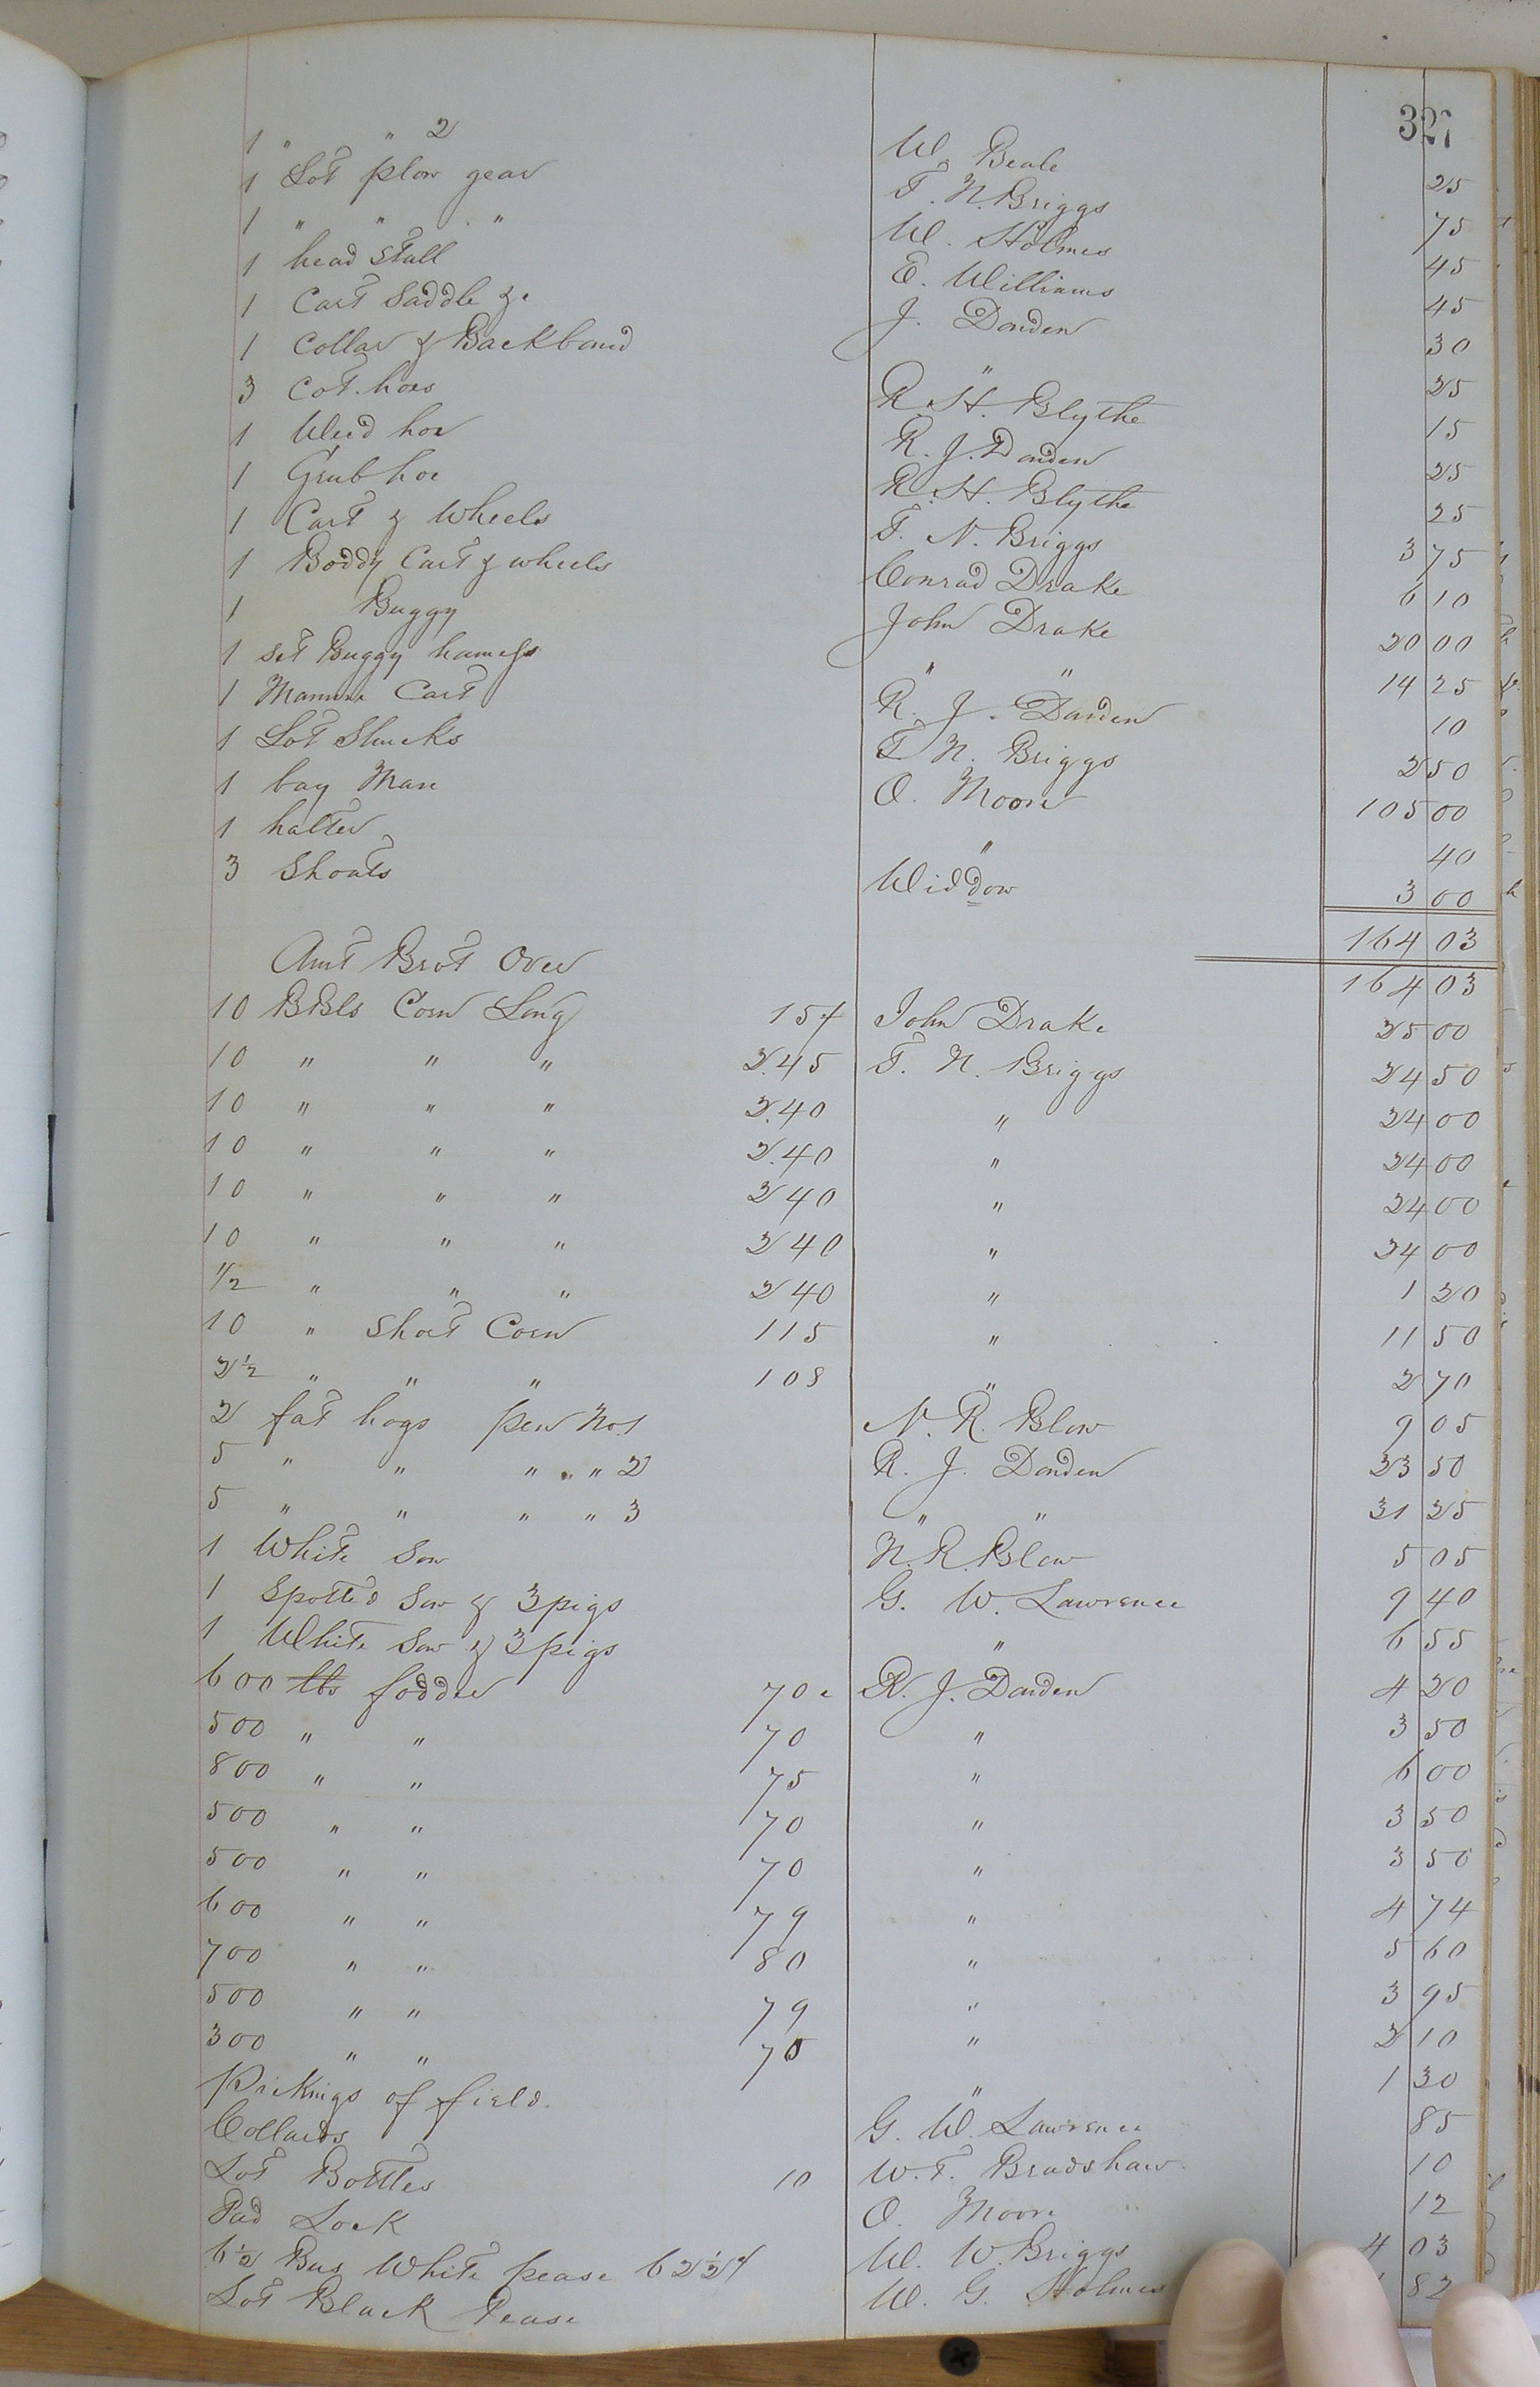 327
1 " " 2 W. Beale 25
1 Lot plow gear T. N. Briggs 75
1 " " " W. Holmes 45
1 head Stall E. Williams 45
1 Cart Saddle &c J. Darden 30
1 Collar & Backband " 25
3 Cot. hoes R. H. Blythe 15
1 Weed hoe R. J. Darden 25
1 Grub hoe R. H. Blythe 25
1 Cart & Wheels T. N. Briggs 3 75
1 Boddy Cart & wheels Conrad Drake 6 10
1 Buggy John Drake 20 00
1 set Buggy harness " " 14 25
1 Manure Cart R. J. Darden 10
1 Lot Shucks T N. Briggs 2 50
1 bay Mare O. Moore 105 00
1 halter " 40
3 Shoats Widdow 3 00
164 03
Amt Brot Over 164 03
10 BBls Corn Long John Drake 25 00
10 " " " 2.45 T. N. Briggs 24 50
10 " " " 2.40 " 24 00
10 " " " 2.40 " 24 00
10 " " " 2 40 " 24 00
10 " " " 2 40 " 24 00
1/2 " " " 2 40 " 1 20
10 " Short Corn 115 " 11 50
2 1/2 " " " 108 " 2 70
2 fat hogs pen No.1 N. R. Blow 9 05
5 " " " " 2 R. J. Darden 23 50
5 " " " " 3 " " 31 25
1 White Sow N. R. Blow 5 05
1 Spotted Sow & 3 pigs G. W. Lawrence 9 40
1 White Sow & 3 pigs " 6 55
600 lbs fodder 70 c R. J. Darden 4 20
500 " " 70 " 3 50
800 " " 75 " 6 00
500 " " 70 " 3 50
500 " " 70 " 3 50
600 " " 79 " 4 74
700 " " 80 " 5 60
500 " " 79 " 3 95
300 " " 70 " 2 10
Pickings of field. " 1 30
Collards G. W. Lawrence 85
Lot Bottles 10 W. T. Bradshaw 10
Pad Lock O. Moore 12
6 1/2 Bus White pease 62 1/2 W. W. Briggs 4 03
Lot Black Pease W. G. Holmes 82